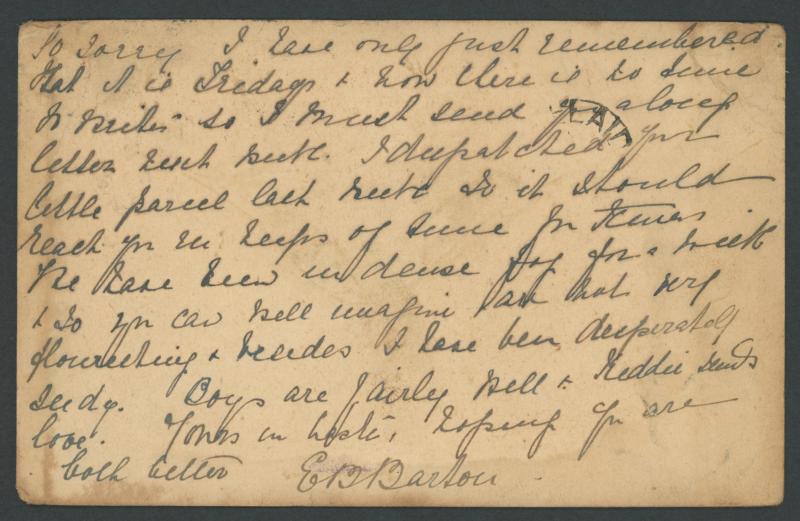 So sorry I have only just remembered
that it is Friday & now there is no time
to write so I must send you a long
letter next week. I despatched your
little parcel last week so it should
reach you in heaps of time for Xmas
We have been in dense fog for a week
& so you can well imagine are not very
flourishing & besides I have been desperately
seedy. Boys are fairly well & Neddie sends
love. Yours in haste, hoping you are
both better E B Barton